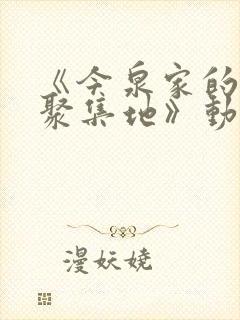 《今泉家的
聚集地》動
漫妖娆